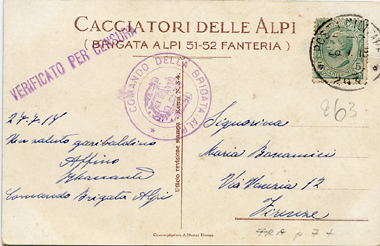 CACCIATORI DELLE ALPI
(BRIGATA ALPI 51-52 FANTERIA)
VERIFICATO PER CENSURA
COMANDO DELLA BRIGATA ALPI
5
263
27.7.18
Un saluto garibaldino
Affino
Comando Brigata Alpi
Ufficio revisione stampa - Roma N. 34.
Signorina
Maria Bonamici
Via Venezia 12
Firenze